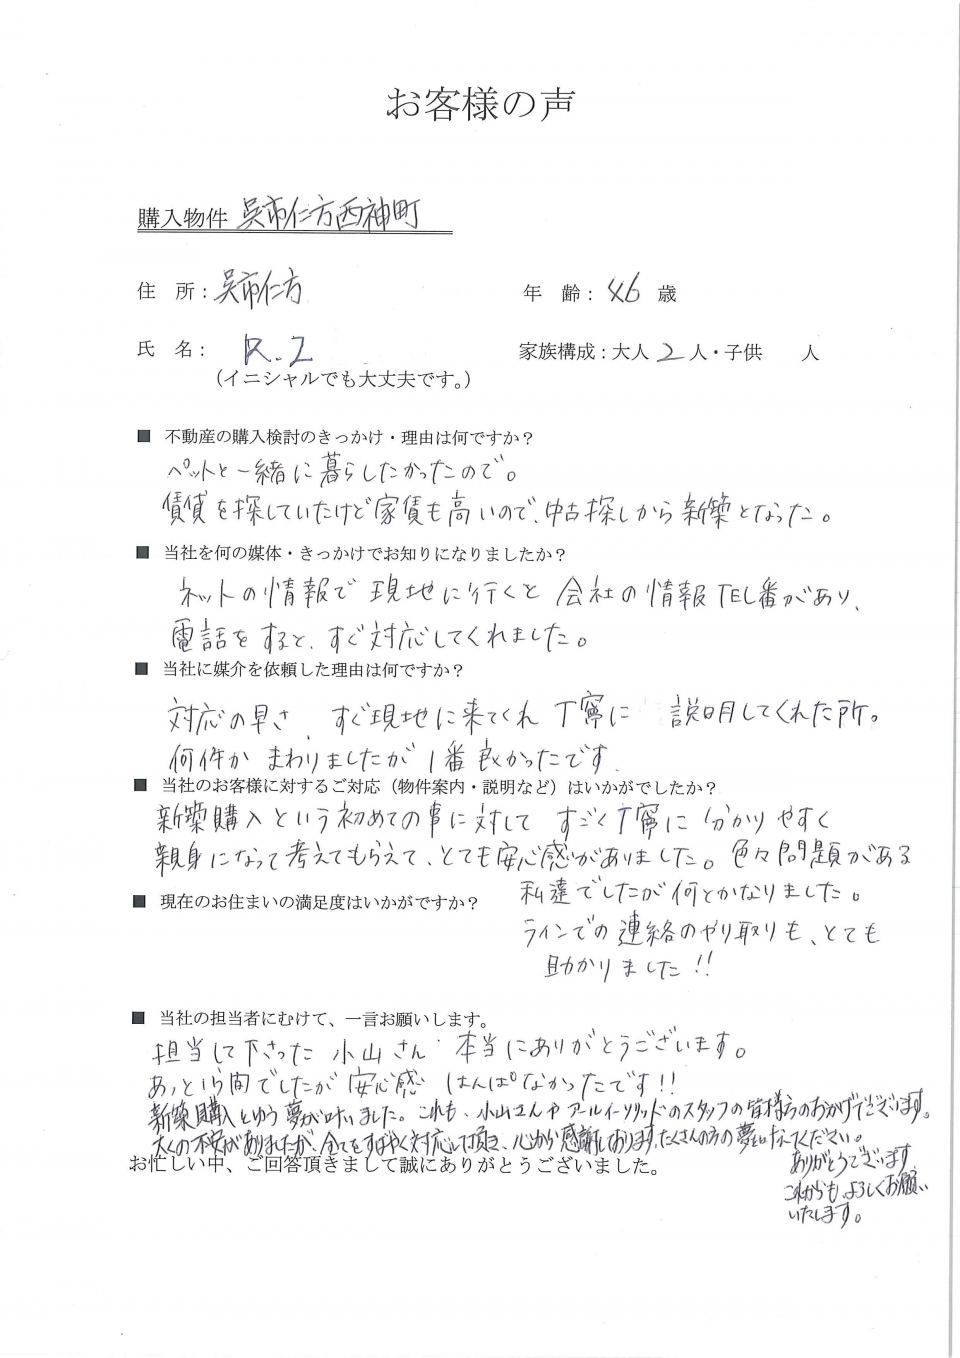 お客様の声
購入物件 呉市仁方西神町
住 所：呉市仁方
年 齢：46 歳
氏 名： R.I
家族構成：大人 2 人・子供 人
（イニシャルでも大丈夫です。）
■ 不動産の購入検討のきっかけ・理由は何ですか？
ペットと一緒に暮らしたかったので。
賃貸を探していたけど家賃も高いので、中古探しから新築となった。
■ 当社を何の媒体・きっかけでお知りになりましたか？
ネットの情報で 現地に行くと 会社の情報TEL番があり、
電話をすると、すぐ対応してくれました。
■ 当社に媒介を依頼した理由は何ですか？
対応の早さ、すぐ現地に来てくれ 丁寧に 説明してくれた所。
何件か まわりましたが 1番 良かったです
■ 当社のお客様に対するご対応（物件案内・説明など）はいかがでしたか？
新築購入という初めての事に対して すごく丁寧に 分かりやすく
親身になって考えてもらえて、とても安心感がありました。色々問題がある
私達でしたが何とかなりました。
■ 現在のお住まいの満足度はいかがですか？
ラインでの連絡のやり取りも、とても
助かりました!!
■ 当社の担当者にむけて、一言お願いします。
担当して下さった 小山さん 本当にありがとうございます。
あっという間でしたが 安心感 はんぱなかったです!!
新築購入とゆう夢が叶いました。これも、小山さんやアールイーソリッドのスタッフの皆様方のおかげでございます。
たくの不安がありましたが、全てをすばやく対応して頂き、心から感謝しております。たくさんの方の夢を
お忙しい中、ご回答頂きまして誠にありがとうございました。
ありがとうございます
これからも、よろしくお願い
いたします。